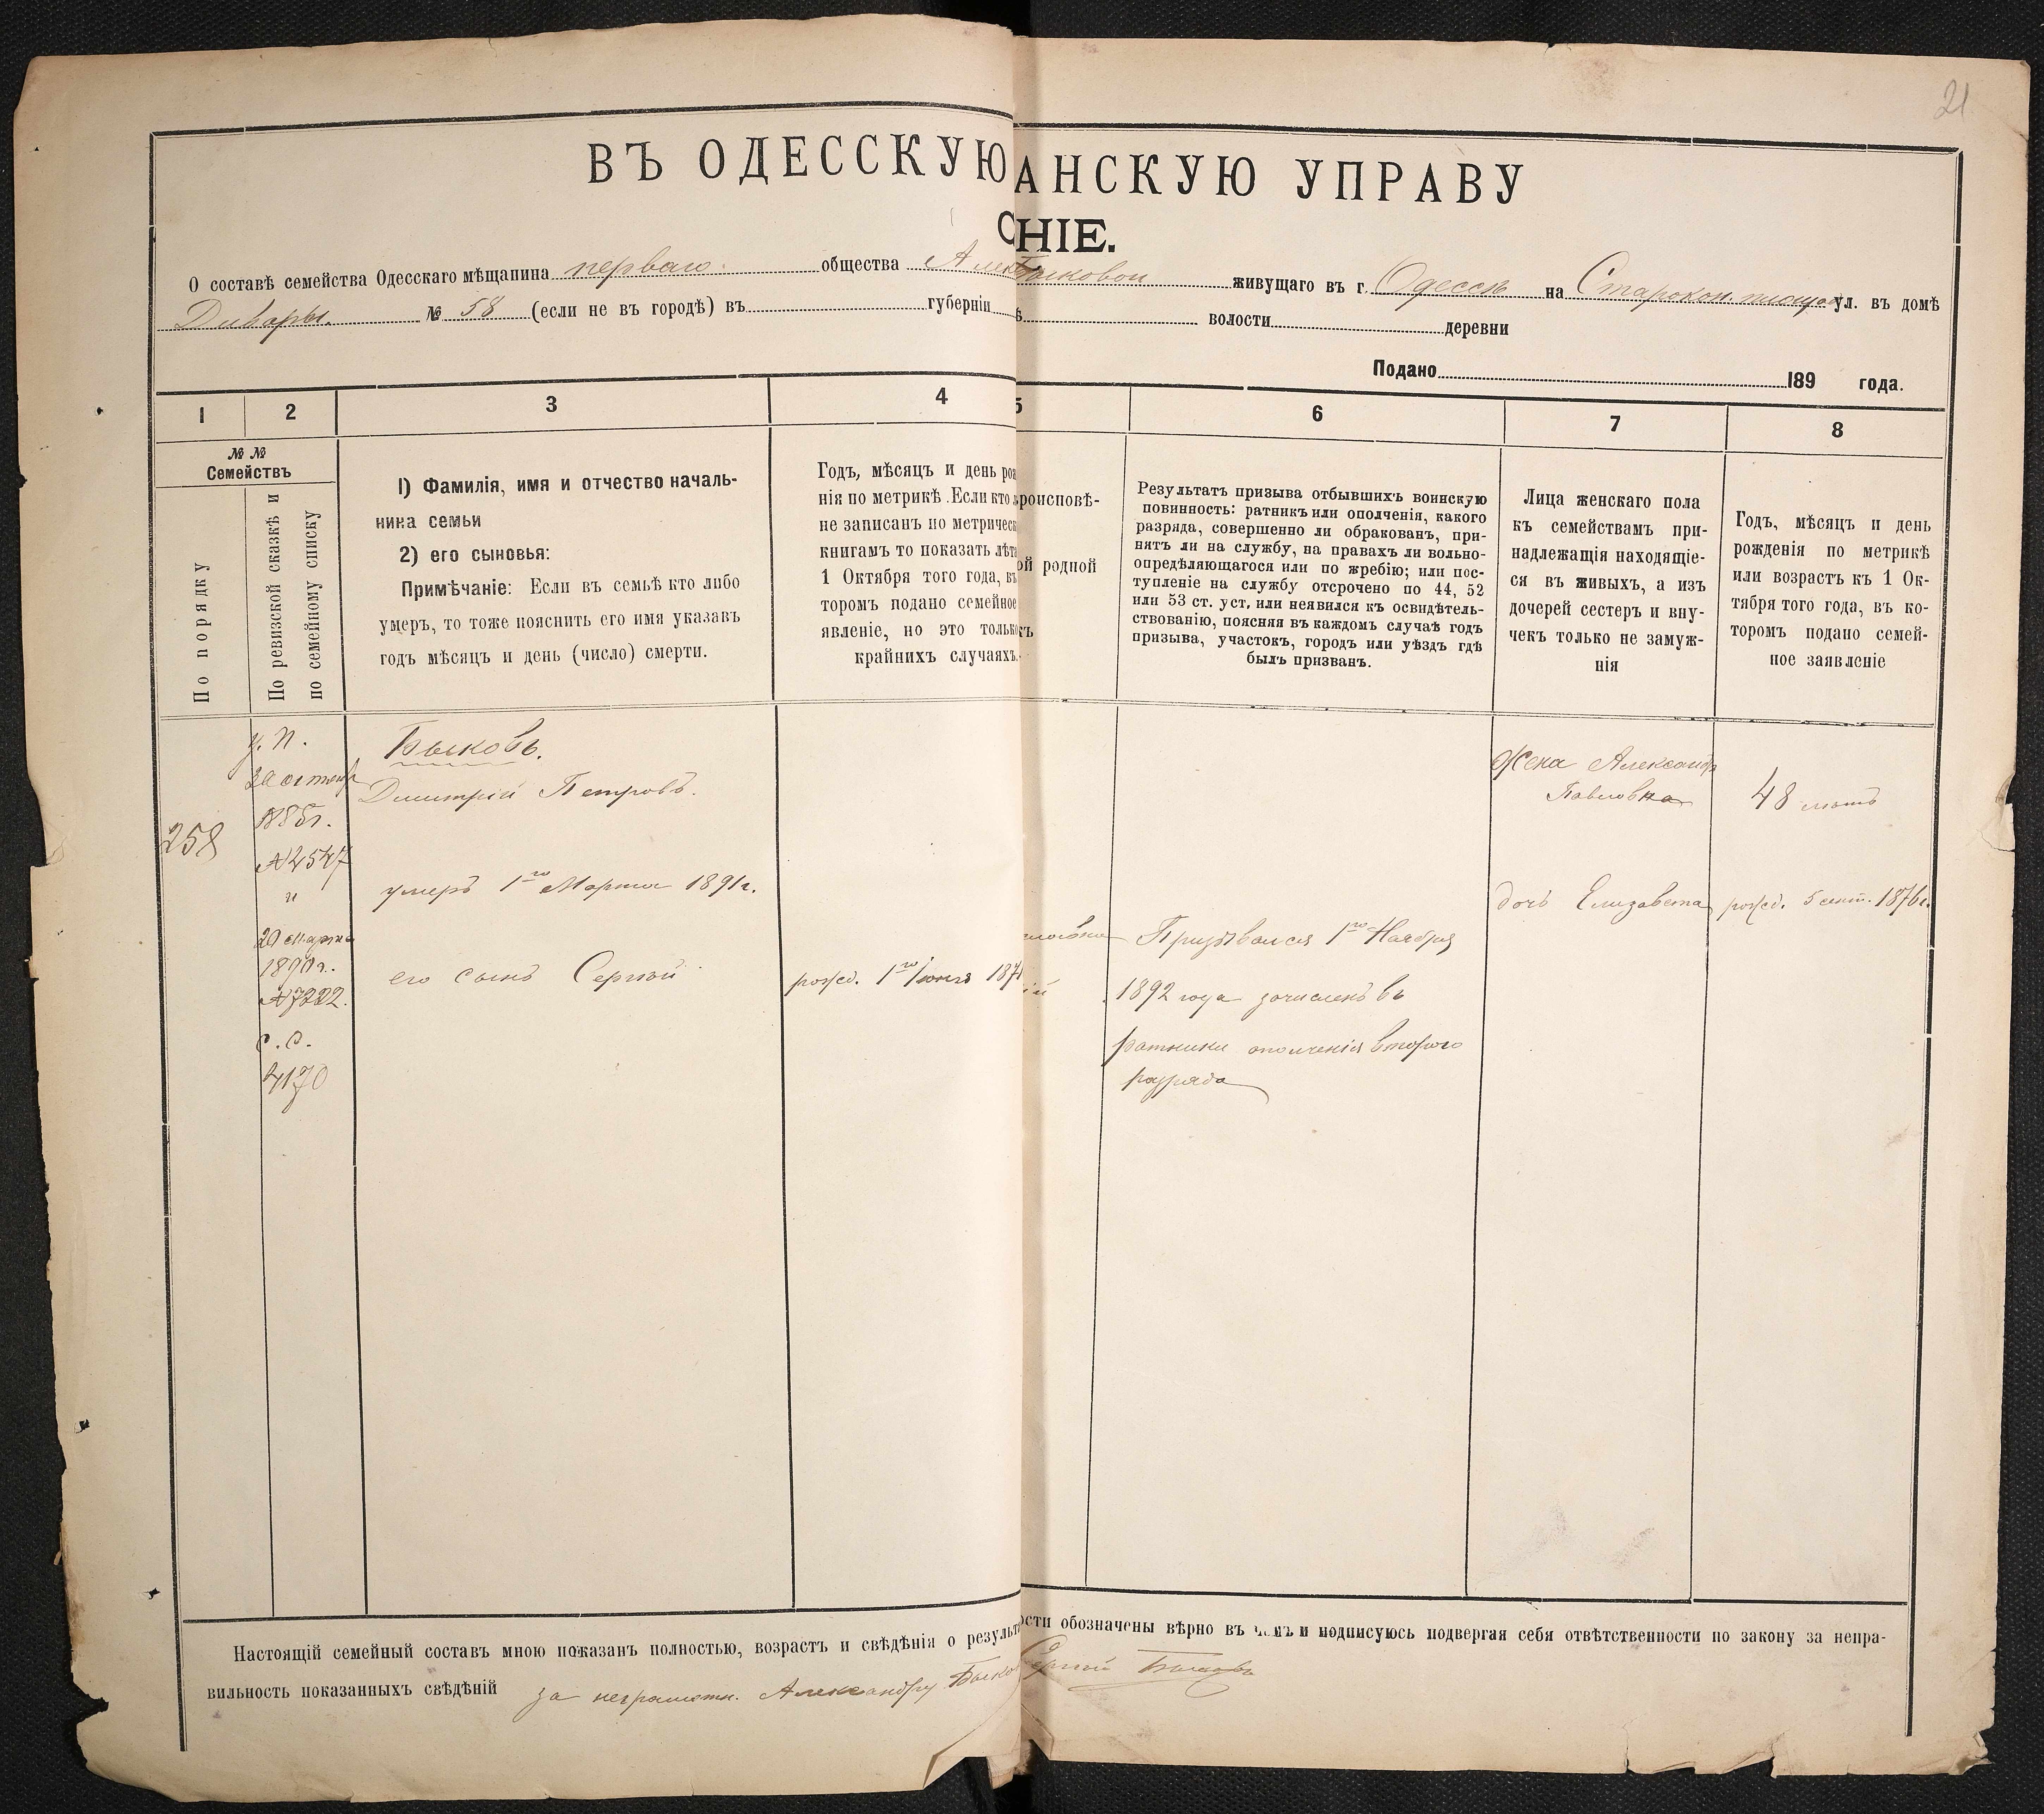 21
ВЪ ОДЕССКУЮ АНСКУЮ УПРАВУ
НІЕ.
О составѣ семейства Одесскаго мѣщанина перваго общества Алек Быковой живущаго въ г. Одессѣ на Старокон. площ. ул. въ домѣ
Дивары. № 58 (если не въ городѣ) въ губерніи волости деревни
Подано 189 года.
1 2 3 4 5 6 7 8
№ №
Семействъ
По порядку
По ревизской сказкѣ и
по семейному списку
1) Фамилія, имя и отчество началь-
ника семьи
2) его сыновья:
Примѣчаніе: Если въ семьѣ кто либо
умеръ, то тоже пояснить его имя указавъ
годъ мѣсяцъ и день (число) смерти.
Годъ, мѣсяцъ и день рож
нія по метрикѣ. Если кто
не записанъ по метрическ
книгамъ то показать лѣта
1 Октября того года, въ
торомъ подано семейное
явленіе, но это только
крайнихъ случаяхъ.
роисповѣ-
ой родной
Результатъ призыва отбывшихъ воинскую
повинность: ратникъ или ополченія, какого
разряда, совершенно ли обракован, при-
нятъ ли на службу, на правахъ ли вольно-
опредѣляющагося или по жребію; или пос-
тупленіе на службу отсрочено по 44, 52
или 53 ст. уст, или неявился къ освидѣтель-
ствованію, поясняя въ каждомъ случаѣ годъ
призыва, участокъ, городъ или уѣздъ гдѣ
былъ призван.
Лица женскаго пола
къ семействамъ при-
надлежащія находящіе-
ся въ живыхъ, а изъ
дочерей сестеръ и вну-
чекъ только не замуж-
нія
Годъ, мѣсяцъ и день
рожденія по метрикѣ
или возрастъ къ 1 Ок-
тября того года, въ ко-
торомъ подано семей-
ное заявленіе
258
у. П.
1885г.
№ 4547
и
20 марта
1890г.
№ 7222.
с. с.
4170
Быковъ.
Дмитрій Петровъ.
умеръ 1го Марта 1891г.
его сынъ Сергѣй
рожд. 1го Іюня 187
Призывался 1го Ноября
1892 года зачисленъ въ
ратники ополченія второго
разряда
Жена Александр
Павловна
48 лѣтъ
дочь Елизавета
рожд. 5 сент. 1876г.
Настоящій семейный составъ мною показанъ полностью, возрастъ и свѣдѣнія о результа ости обозначены вѣрно въ чемъ и подписуюсь подвергая себя отвѣтственности по закону за непра-
вильность показанныхъ свѣдѣній за неграмотн. Александру Быков Сергѣй Быковъ